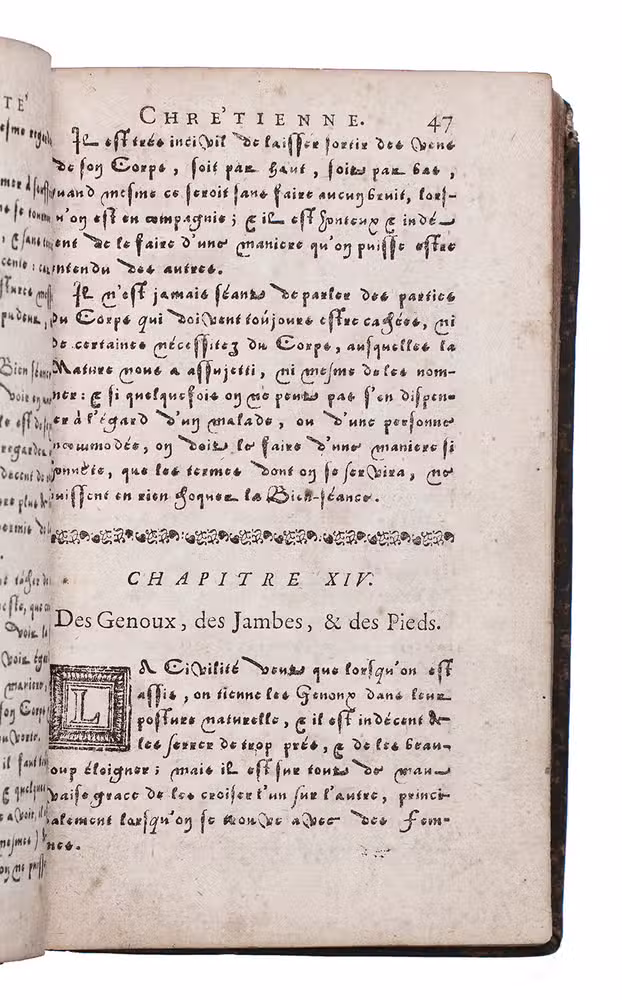 CHRE'TIENNE. 47
Il est tres incivil de laisser sortir des vens
de son Corps, soit par haut, soit par bas,
quand mesme ce seroit sans faire aucun bruit, lors-
qu'on est en compagnie; & il est honteux & indé-
ent de le faire d'une maniere qu'on puisse estre
entendu des autres.
Il n'est jamais séant de parler des parties
du Corps qui doivent toûjours estre cachées, ni
de certaines nécessitez du Corps, ausquelles la
Nature nous a assujetti, ni mesme de les nom-
mer: & si quelquefois on ne peut pas s'en dispen-
ser à l'égard d'un malade, ou d'une personne
incommodée, on doit le faire d'une maniere si
honnéte, que les termes dont on se servira, ne
puissent en rien choquer la Bien-séance.
CHAPITRE XIV.
Des Genoux, des Jambes, & des Pieds.
LA Civilité veut que lorsqu'on est
assis, on tienne les Genoux dans leur
posture naturelle, & il est indécent de
les serrer de trop prés, & de les beau-
coup éloigner; mais il est sur tout de mau-
vaise grace de les croiser l'un sur l'autre, princi-
palement lorsqu'on se trouve avec des Fem-
mes.